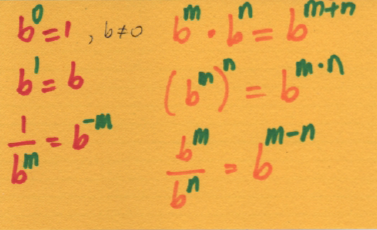 b⁰=1 , b≠0
b¹=b
1/bᵐ = b⁻ᵐ
bᵐ · bⁿ = bᵐ⁺ⁿ
(bᵐ)ⁿ = bᵐ·ⁿ
bᵐ/bⁿ = bᵐ⁻ⁿ